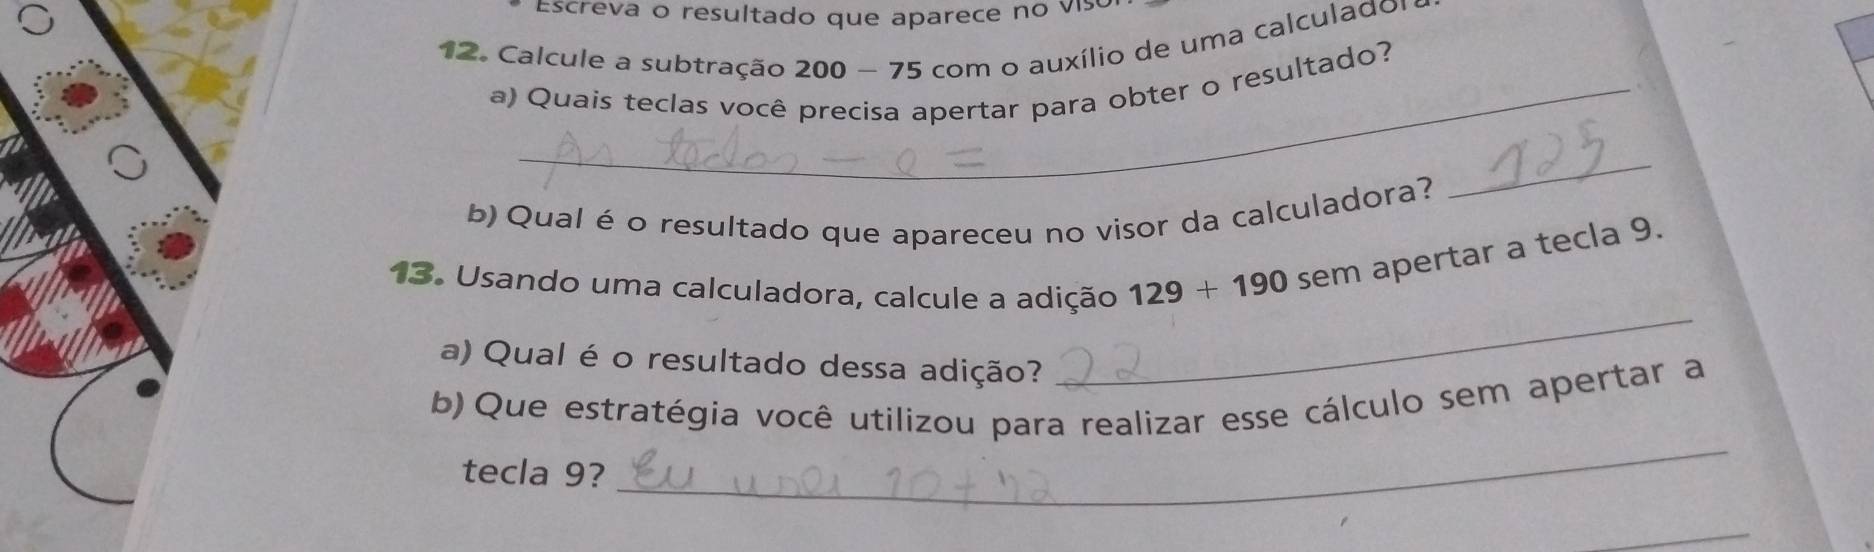 Escreva o resultado que aparece no visor.
12. Calcule a subtração 200 — 75 com o auxílio de uma calculadora.
a) Quais teclas você precisa apertar para obter o resultado?
As teclas — e =
b) Qual é o resultado que apareceu no visor da calculadora? 125
13. Usando uma calculadora, calcule a adição 129 + 190 sem apertar a tecla 9.
a) Qual é o resultado dessa adição? 22
b) Que estratégia você utilizou para realizar esse cálculo sem apertar a
tecla 9? Eu usei 10 + 12